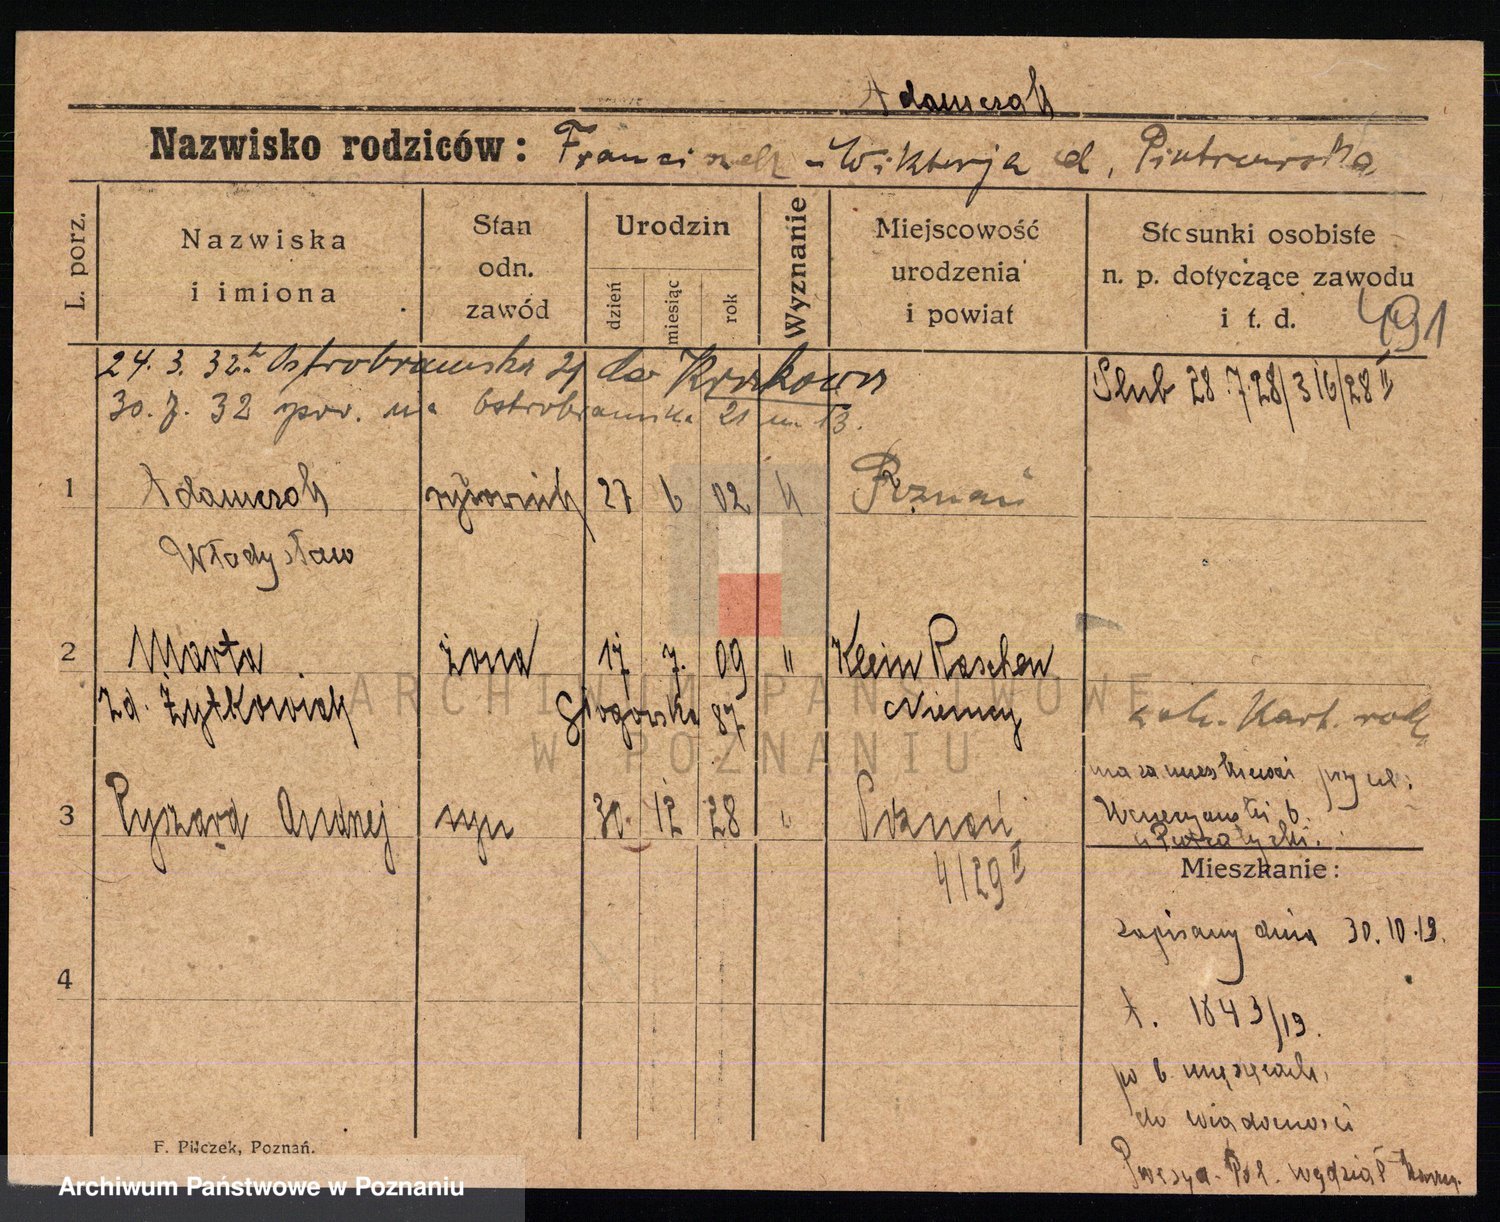 Adamczak
Nazwisko rodziców: Franciszek - Wiktorja d. Piotrowska
L. porz.
Nazwiska i imiona
Stan odn. zawód
Urodzin
dzień
miesiąc
rok
Wyznanie
Miejscowość urodzenia i powiat
Stosunki osobiste n. p. dotyczące zawodu i t. d.
491
24. 3. 32 Ostrobramska 21 do Krakowa
30. 7. 32 pow. na Ostrobramska 21 m 13.
Ślub 28.7 28/316/28 II
1 Adamczak 27 6 02 k Poznań
Władysław
2 Marta żona 17 7. 09 " Klein Raschen
zd. Żytkowiak Głogowska 87 Niemcy
kart. rodz
3 Ryszard Andrzej syn 30. 12 28 " Poznań
4/29 II
przy ul:
6.
Mieszkanie:
zapisany dnia 30.10.19.
4
1843/19.
po 6 miesiącach
do wiadomości
Pol. wydział
F. Pilczek, Poznań.
ARCHIWUM PAŃSTWOWE
W POZNANIU
Archiwum Państwowe w Poznaniu